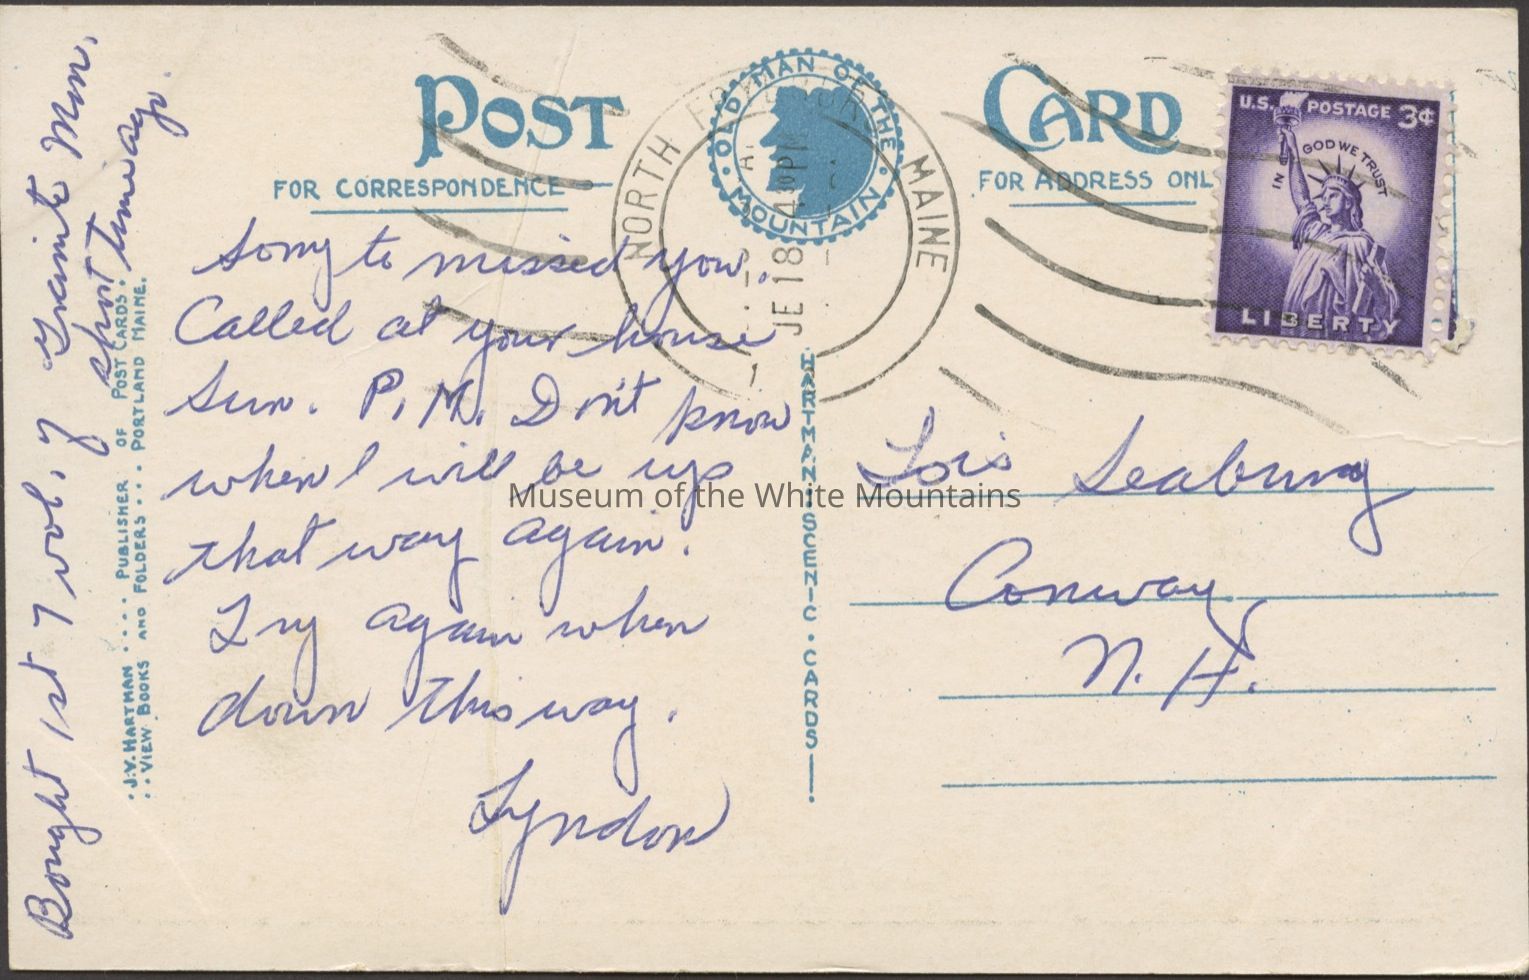 POST CARD
FOR CORRESPONDENCE
FOR ADDRESS ONL
OLD MAN OF THE MOUNTAIN
NORTH MAINE
18
4 PM
U.S. POSTAGE 3¢
IN GOD WE TRUST
LIBERTY
Sorry to missed you.
Called at your house
Sun. P.M. Don't know
when I will be up
that way again.
Try again when
down this way.
Lyndon
Bought 1st 7 vol. of Granite Mon.
short time ago.
J.V. HARTMAN .... PUBLISHER OF POST CARDS.
..VIEW BOOKS AND FOLDERS... PORTLAND MAINE.
HARTMAN SCENIC CARDS
Lois Seabury
Conway
N.H.
Museum of the White Mountains